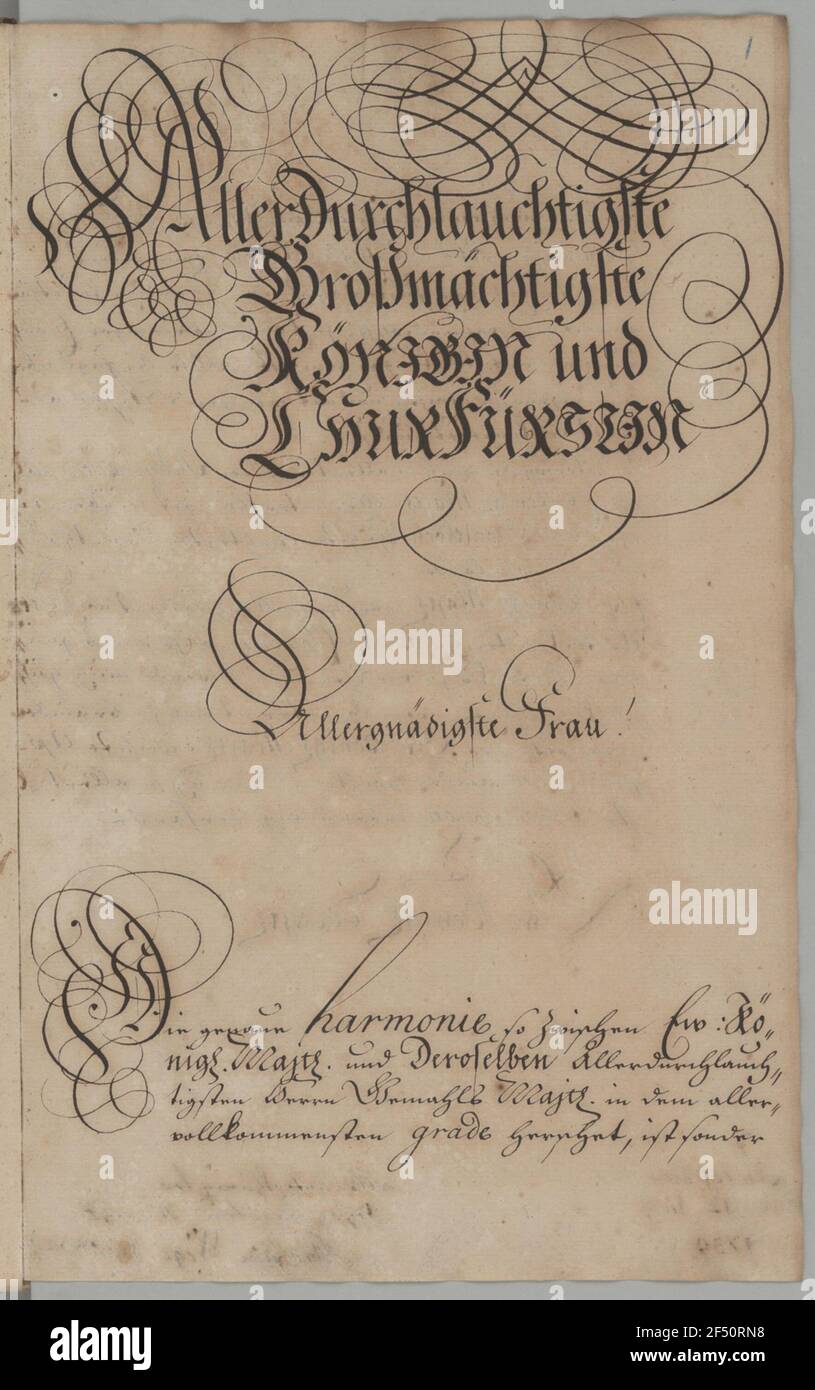 1
AllerDurchlauchtigste
Großmächtigste
KÖNIGIN und
CHURFÜRSTIN
Allergnädigste Frau!
Die genaue harmonie so zwischen Ew: Kö„
nigl. Majtt. und Deroselben Allerdurchlauch„
tigsten Herrn Gemahls Majtt. in dem aller„
vollkommensten grade herrschet, ist sonder
alamy
alamy
alamy
alamy
Image ID: 2F50RN8
www.alamy.com